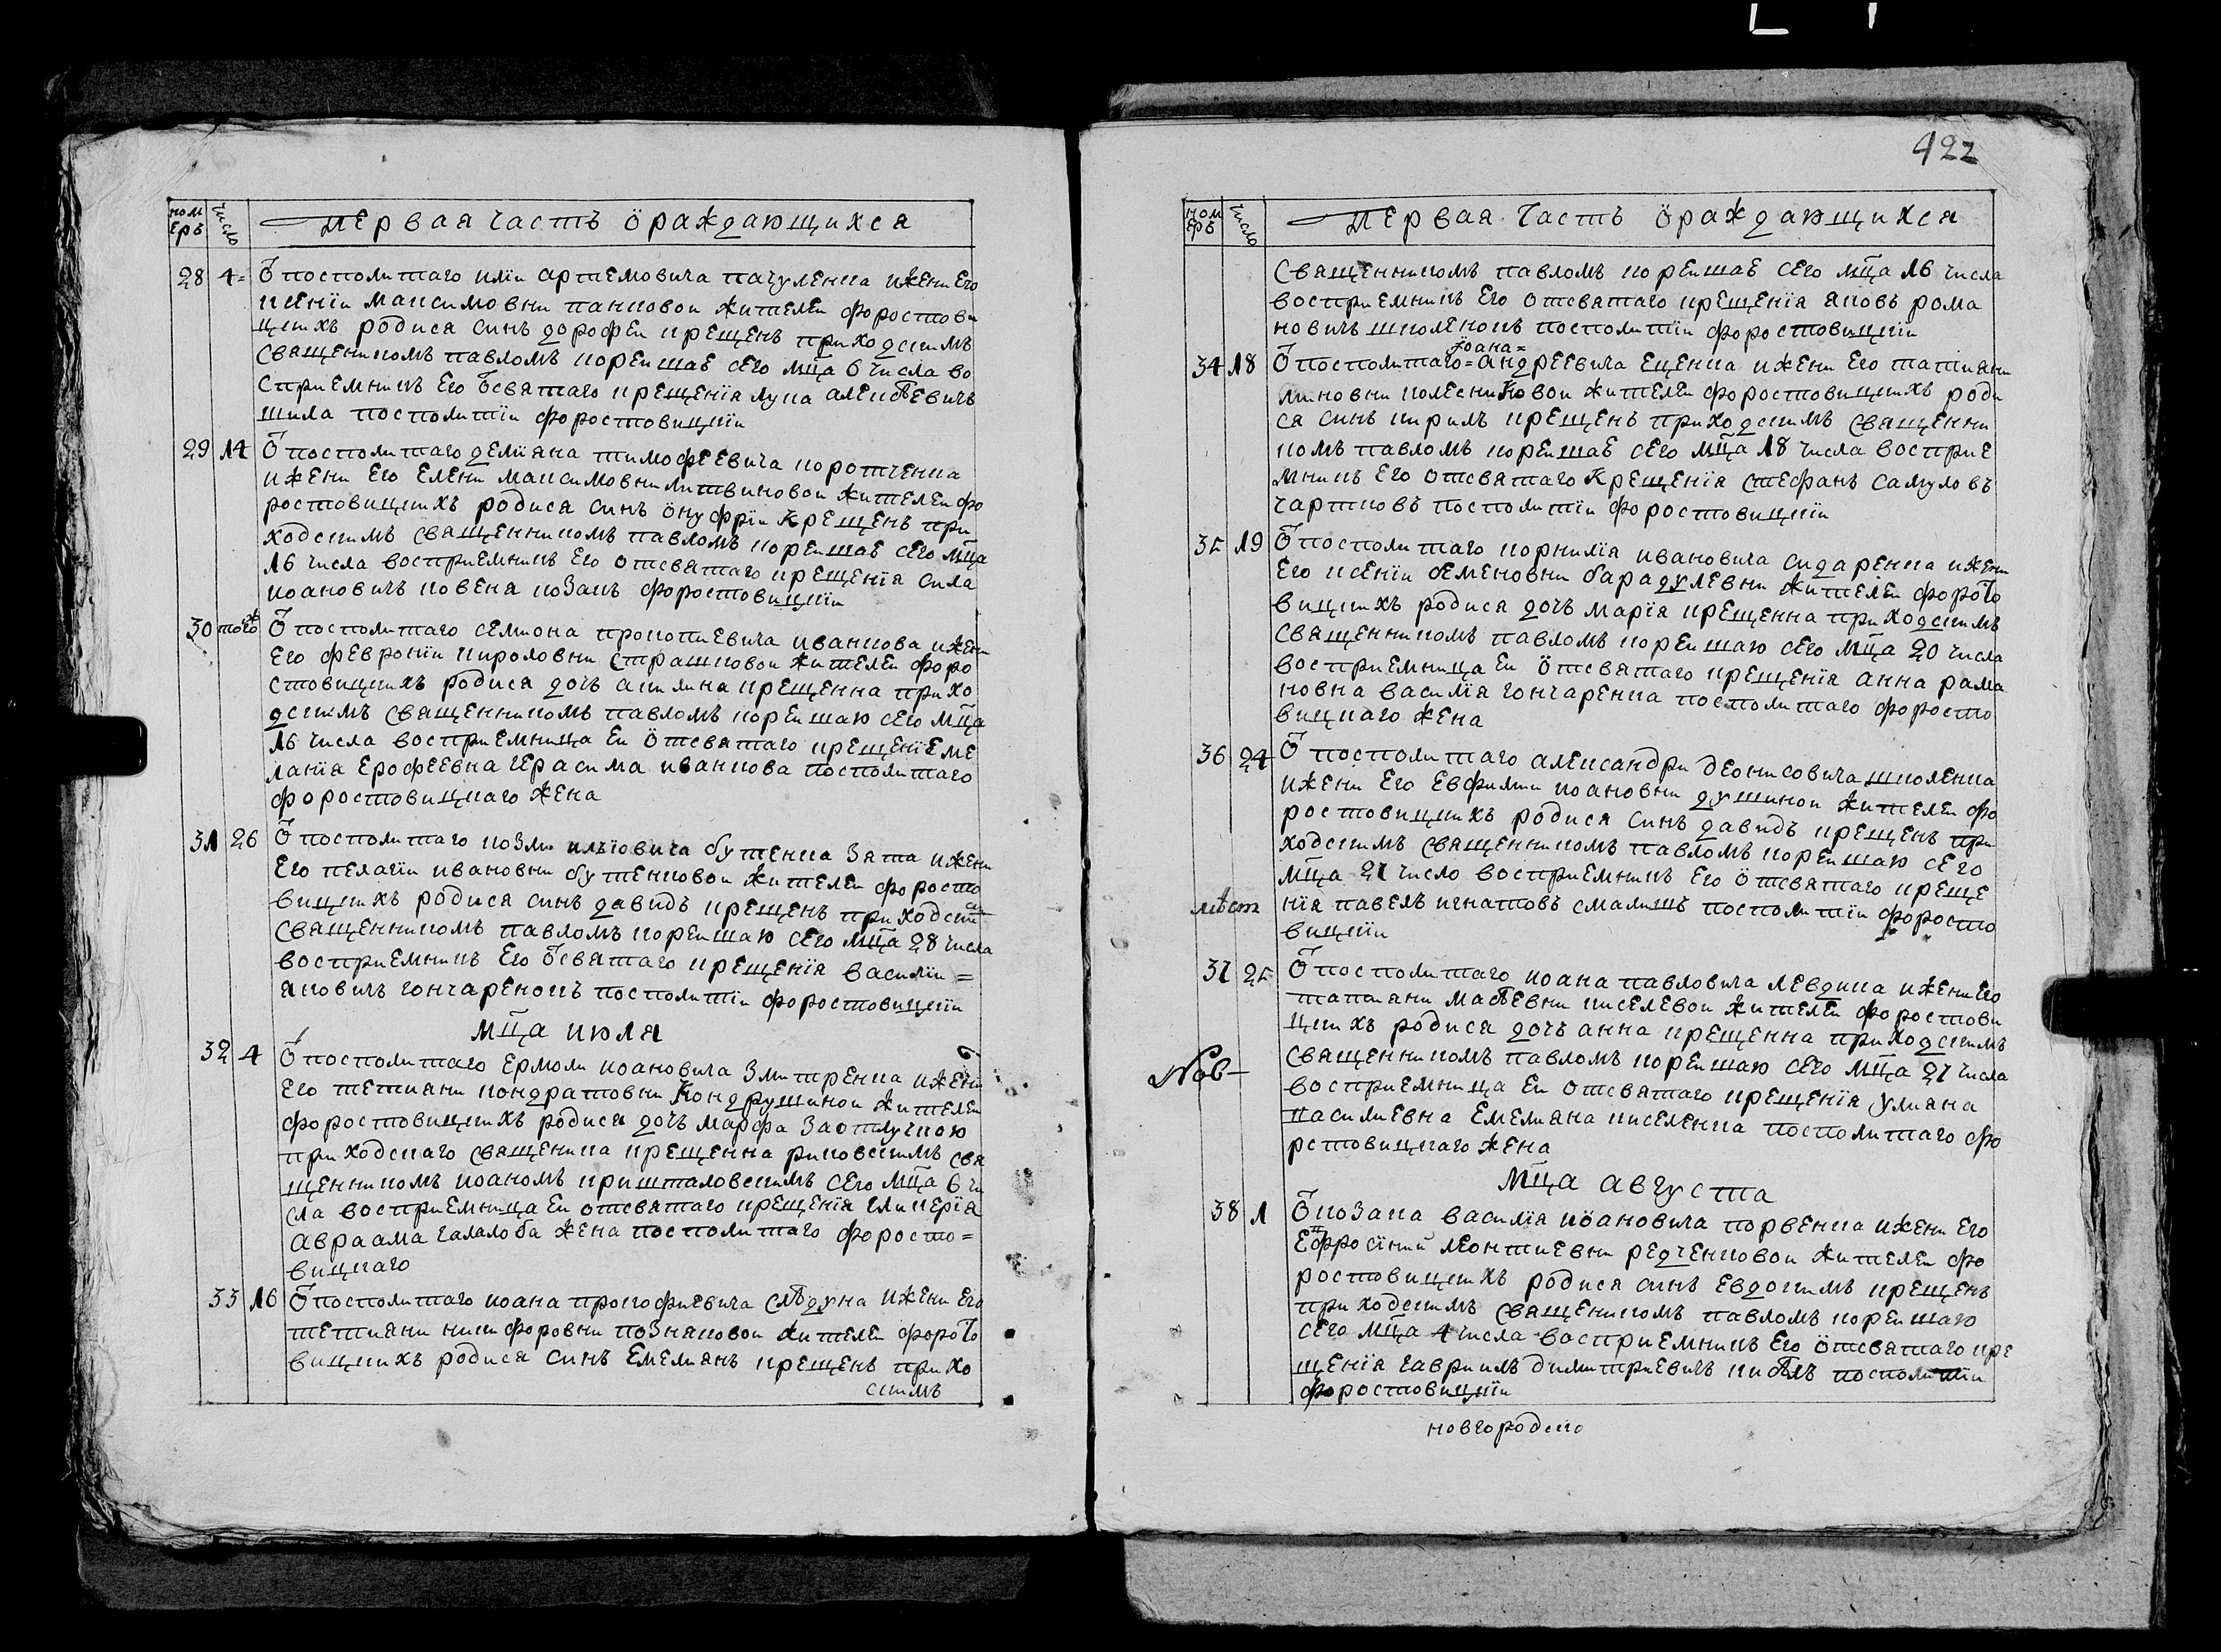 422
номеръ число первая часть ѿ раждающихся
28 4= Ѿ посполитаго илїи артемовича пачуленка ижени его
ксенїи максимовни панковои жителеи форостови
цкихъ родися синъ дорофеи крещенъ приходскимъ
священикомъ павломъ кореишае сего мца 6 числа во
сприемникъ его ѿ святаго крещенїя лука алексѣевичъ
шила посполитїи форостовицкїи
29 14 Ѿ посполитаго делїяна тимофеевича коротченка
ижени его елени максимовни литвиновои жителеи фо
ростовицкихъ родися синъ онуфрїи крещенъ при
ходскимъ священникомъ павломъ кореишае сего мца
16 числа восприемникъ его отсвятаго крещенїя сила
иоановичъ ковеня козакъ форостовицкїи
30 тогож Ѿ посполитаго семиона прокопиевича иванкова ижени
его февронїи кироловни страшковои жителеи форо
стовицкихъ родися дочъ акилина крещенна прихо
дскимъ священникомъ павломъ кореишаю сего мца
16 числа восприемница еи отсвятаго крещенїя еме
ланїя ерофеевна герасима иванкова посполитаго
форостовицкаго жена
31 26 Ѿ посполитаго козми илъїовича бутенка зятя ижени
его пелагїи ивановни бутенковои жителеи форосто
вицкихъ родися синъ давидъ крещенъ приходским
священникомъ павломъ кореишаю сего мца 28 числа
восприемникъ его ѿсвятаго крещенїя василїи =
яковичъ гончаренокъ посполитїи форостовицкїи
мца июля
32 4 Ѿ посполитаго ермоли иоановича змитренка ижени
его тетияни кондратовни кондрушинои жителеи
форостовицкихъ родися дочъ марфа заотлучкою
приходскаго священика крещенна риковскимъ свя
щенникомъ иоаномъ кришталовскимъ сего мца 6 чи
сла восприемница еи отсвятаго крещенїя гликерїя
авраама галалоба жена посполитаго форосто=
вицкаго
33 16 Ѿ посполитаго иоана прокофиевича слѣдуна ижени его
тетияни никифоровни познаковои жителеи форосто
вицкихъ родися синъ емелиянъ крещенъ прихо
скимъ
номеръ число первая часть ѿ раждающихся
священникомъ павломъ кореишае сего мца 16 числа
восприемникъ его отсвятаго крещенїя яковъ рома
новичъ школенокъ посполитїи форостовицкїи
34 18 Ѿ посполитаго= иоана= андреевича ещенка ижени его татияни
миновни колесниковои жителеи форостовицкихъ роди
ся синъ кирилъ крещенъ приходскимъ священни
комъ павломъ кореишае сего мца 18 числа восприе
мникъ его отсвятаго крещенїя стефанъ самуловъ
чартковъ посполитїи форостовицкїи
35 19 Ѿ посполитаго корнилїя ивановича сидаренка ижени
его ксенїи семеновни барадулевни жителеи форосто
вицкихъ родися дочъ марїя крещенна приходскимъ
священникомъ павломъ кореишаю сего мца 20 числа
восприемница еи отсвятаго крещенїя анна рама
новна василїя гончаренка посполитаго форосто
вицкаго жена
36 24 Ѿ посполитаго александри деонисовича школенка
ижени его евфимии иоановни душинои жителеи фо
ростовицкихъ родися синъ давидъ крещенъ при
ходскимъ священникомъ павломъ кореишаю сего
мца 27 число восприемникъ его отсвятаго креще
нїя павелъ игнатовъ смалишъ посполитїи форосто
вицкїи
37 25 Ѿ посполитаго иоана павловича левдика ижени его
татияни масѣевни киселевои жителеи форостови
цкихъ родися дочъ анна крещенна приходскимъ
священникомъ павломъ кореишаю сего мца 27 числа
восприемница еи отсвятаго крещенїя улияна
василиевна емелияна киселенка посполитаго фо
рстовицкаго жена
Мца августа
38 1 Ѿ козака василїя иоановича порвенка ижени его
ефросїнии леонтиевни редченковои жителеи фо
ростовицкихъ родися синъ евдокимъ крещенъ
приходскимъ священикомъ павломъ кореишаю
сего мца 4 числа восприемникъ его отсвятаго кре
щенїя гавриилъ димитриевичъ посполитїи
форостовицкїи
новгородско